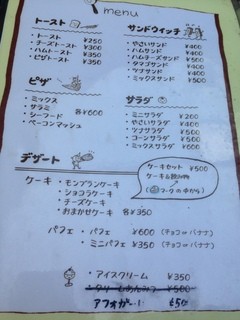 menu
トースト
・トースト ¥250
・チーズトースト ¥300
・ハムトースト ¥350
・ピザトースト ¥350
サンドウィッチ
・やさいサンド ¥400
・ハムサンド ¥400
・ハムチーズサンド ¥500
・タマゴサンド ¥400
・ツナサンド ¥400
・ミックスサンド ¥500
ピザ
・ミックス
・サラミ
・シーフード 各¥600
・ベーコンマッシュ
サラダ
・ミニサラダ ¥200
・やさいサラダ ¥400
・ツナサラダ ¥500
・コーンサラダ ¥500
・ミックスサラダ ¥600
デザート
ケーキ ・モンブランケーキ
・ショコラケーキ
・チーズケーキ
・おまかせケーキ 各¥350
ケーキセット ¥500
ケーキ&飲み物
パフェ ・パフェ ¥600 (チョコorバナナ)
・ミニパフェ ¥350 (チョコorバナナ)
・アイスクリーム ¥350
・クリームあんみつ ¥500
アフォガー